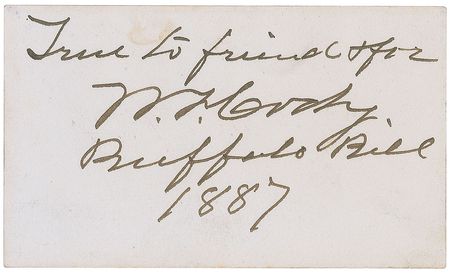 True to friend & foe
W. F. Cody
Buffalo Bill
1887